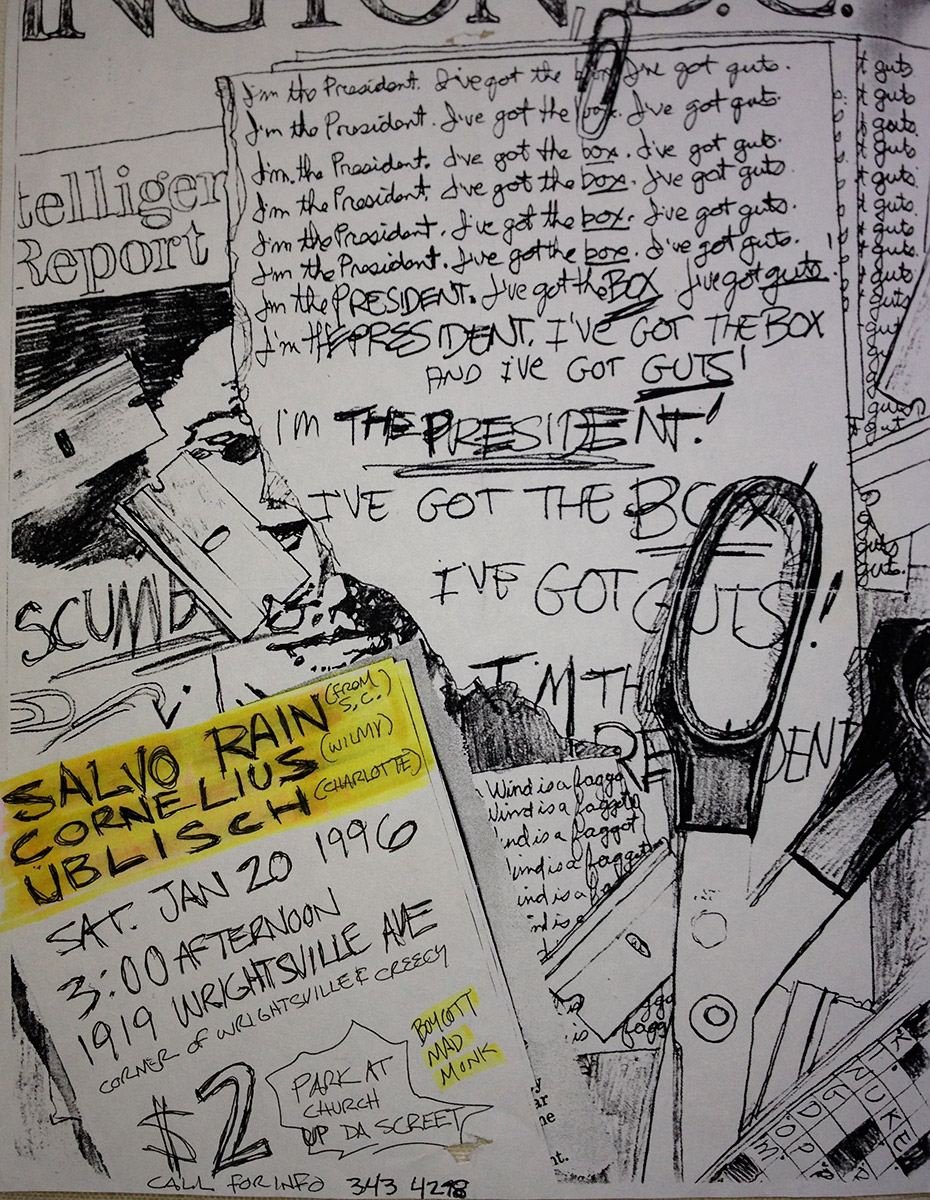 INGTON, D.C.
I'm the President. I've got the box. I've got guts.
I'm the President. I've got the box. I've got guts.
I'm the President. I've got the box. I've got guts.
I'm the President. I've got the box. I've got guts.
I'm the President. I've got the box. I've got guts.
I'm the President. I've got the box. I've got guts.
I'm the PRESIDENT. I've got the BOX I've got guts.
I'm the PRESIDENT. I'VE GOT THE BOX
AND I'VE GOT GUTS!
I'M THE PRESIDENT!
I'VE GOT THE BOX!
I'VE GOT GUTS!
I'M TH
RE IDENT
t guts
t guts
t guts.
t guts
t guts.
t guts
t guts.
t guts
t guts
guts
guts.
telligen
Report
SCUMB
SALVO RAIN (FROM S.C.)
CORNELIUS (WILMY)
UBLISCH (CHARLOTTE)
SAT. JAN 20 1996
3:00 AFTERNOON
1919 WRIGHTSVILLE AVE
CORNER OF WRIGHTSVILLE & CREECY
$2
PARK AT
CHURCH
UP DA SCREET
BOYCOTT
MAD
MONK
CALL FOR INFO 343 4298
Wind is a faggo
Wind is a faggot
ind is a faggot
ind is a faggot
ind is a fa
nd is a
is fagg